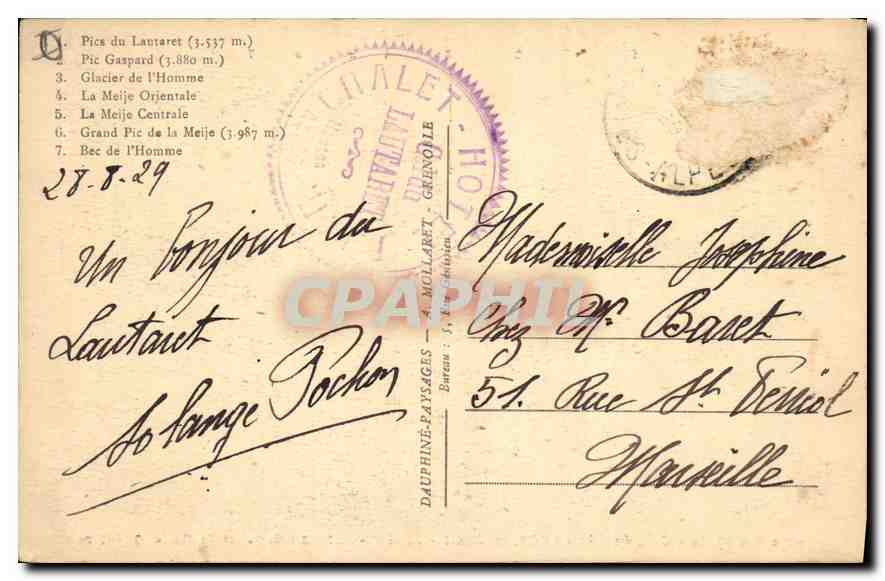 1. Pics du Lautaret (3.537 m.)
2 Pic Gaspard (3.880 m.)
3. Glacier de l'Homme
4. La Meije Orientale
5. La Meije Centrale
6. Grand Pic de la Meije (3.987 m.)
7. Bec de l'Homme
28-8-29
Un bonjour du
Lautaret
Solange Pochon
CHALET-HOT
LAUTARET
DAUPHINÉ-PAYSAGES — A. MOLLARET - GRENOBLE
Bureau : 5,
Mademoiselle Josephine
Chez Mr Baret
51. Rue St
Marseille
CPAPHIL